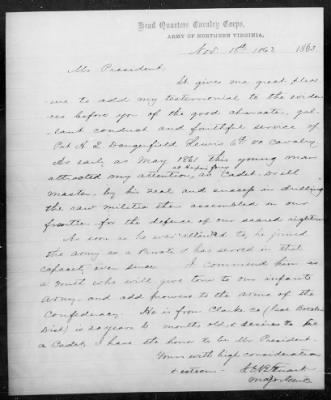 Head Quarters Cavalry Corps,
ARMY OF NORTHERN VIRGINIA,
Nov. 18th 1863 1863
Mr President.
It gives me great pleas-
ure to add my testimonial to the eviden-
ces before you of the good character, gal-
lant conduct and faithful service of
Pvt H. L. Dangerfield Lewis 6th Va Cavalry
As early as May 1861 this young man
attracted my attention, as Cadet Drill
master, by his zeal and success in drilling
the raw militia then assembled on our
frontier for the defence of our sacred rights
As soon as he was allowed to, he joined
the army as a Private & has served in that
capacity ever since. I commend him as
a youth who will give tone to our infant
Army, and add prowess to the arms of the
Confederacy. He is from Clarke co
Dist) is 20 years months old & desires to be
a Cadet. I have the honor to be Mr President.
Yours with high consideration
& esteem - J. E. B. Stuart
Major Genl